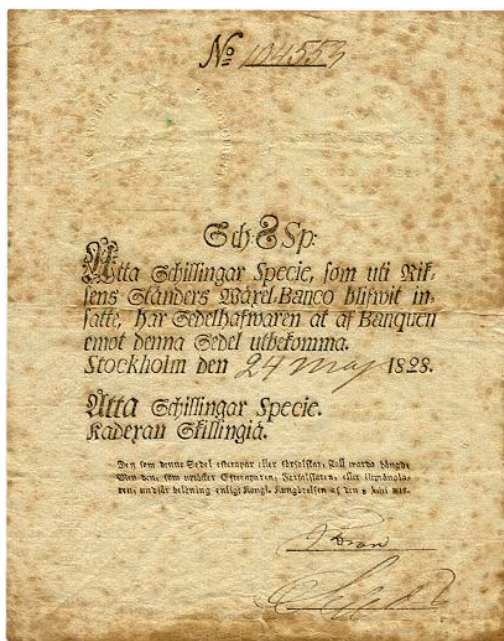 No 104553
Sch: 8 Sp:
Åtta Schillingar Specie, som uti Rik-
sens Ständers Wäxel-Banco blifwit in-
satte, har Sedelhafwaren at af Banquen
emot denna Sedel utbekomma.
Stockholm den 24 Maj 1828.
Åtta Schillingar Specie.
Kaderan Skillingiä.
Den som denna Sedel efterapar eller förfalskar, skall warda hängd;
Men den, som uptäcker Efteraparen, Förfalskaren,
belöning enligt Kongl. Kungörelsen af den